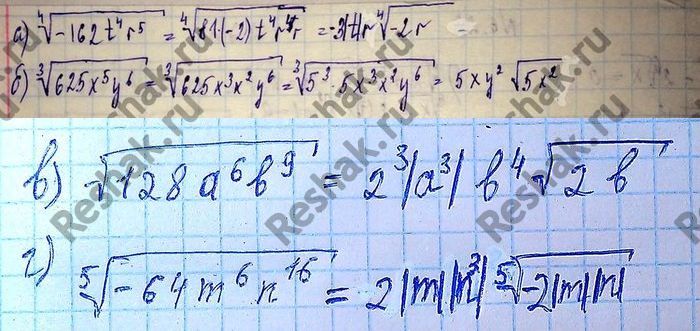 а) ⁴√(-162t⁴r⁵) = ⁴√(81·(-2)t⁴r⁴r) = -3|t|r ⁴√(-2r) =
б) ³√(625x⁵y⁶) = ³√(625x³x²y⁶) = ³√(5³·5x³x²y⁶) = 5xy² √(5x²)
в) √(128a⁶b⁹) = 2³|a³|b⁴√(2b)
г) ⁵√(-64m⁶n¹⁶) = 2|m||n³| ⁵√(-2|m|n|)
Reshak.ru
Reshak.ru
Reshak.ru
Reshak.ru
Reshak.ru
Reshak.ru